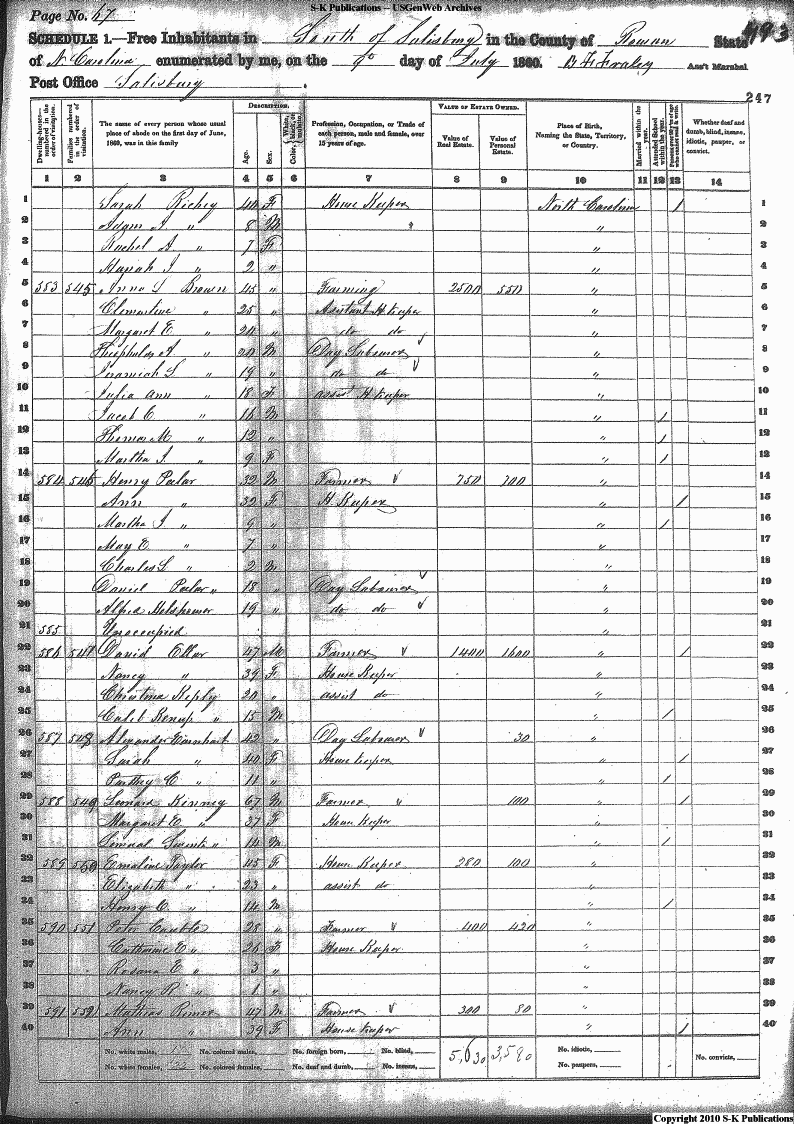 S-K Publications – USGenWeb Archives
Page No. 67
SCHEDULE 1.—Free Inhabitants in South of Salisbury in the County of Rowan State 493
of N Carolina enumerated by me, on the 9th day of July 1860. B F Fraley Ass't Marshal
Post Office Salisbury
247
DESCRIPTION. VALUE OF ESTATE OWNED.
Dwelling-houses—numbered in the order of visitation. Families numbered in the order of visitation. The name of every person whose usual place of abode on the first day of June, 1860, was in this family Age. Sex. Color, White, black, or mulatto. Profession, Occupation, or Trade of each person, male and female, over 15 years of age. Value of Real Estate. Value of Personal Estate. Place of Birth, Naming the State, Territory, or Country. Married within the year. Attended School within the year. Whether deaf and dumb, blind, insane, idiotic, pauper, or convict.
1 2 3 4 5 6 7 8 9 10 11 12 13 14
1 Sarah Richey 40 F House Keeper North Carolina / 1
2 Adam A " 8 M " " 2
3 Rachel A " 7 F " 3
4 Hanah J " 2 " " 4
5 583 545 Anna L Brown 45 " Farming 2500 550 " 5
6 Clementine " 25 " Assistant H Keeper " 6
7 Margaret E " 20 " do do " 7
8 Theophulus A " 20 M Day Labourer " 8
9 Jeremiah L " 19 " do do " 9
10 Julia Ann " 18 F assist H Keeper " 10
11 Jacob C " 16 M " / 11
12 Thomas M " 12 " " / 12
13 Martha J " 9 F " / 13
14 584 546 Henry Peeler 32 M Farmer 750 700 " 14
15 Ann " 32 F H. Keeper " / 15
16 Martha J " 9 " " / 16
17 May E " 7 " " 17
18 Charles L " 2 M " 18
19 David Peeler " 18 " Day Labourer " 19
20 Alfred 19 " do do " 20
21 585 Unoccupied " 21
22 586 547 David Eller 47 M Farmer 1400 1600 " / 22
23 Nancy " 39 F House Keeper " 23
24 Christina Keply 20 " assist do " 24
25 Caleb " 15 M " / 25
26 587 548 Alexander Earnhart 42 " Day Labourer 30 " 26
27 Sarah " 40 F House Keeper " / 27
28 C " 11 " " / 28
29 588 549 Leonard Kenney 67 M Farmer 100 " / 29
30 Margaret E " 37 F House Keeper " 30
31 " 14 M " / 31
32 589 550 Emaline Taylor 45 F House Keeper 280 100 " 32
33 Elizabeth " 23 " assist do " 33
34 Henry C " 14 M " / 34
35 590 551 Peter Cauble 28 " Farmer 400 420 " 35
36 Catharine E " 26 F House Keeper " 36
37 Rosana E " 3 " " 37
38 Nancy R " 1 " " 38
39 591 552 Mathias Rimer 47 M Farmer 300 80 " 39
40 Ann " 39 F House Keeper " / 40
No. white males, No. colored males, No. foreign born, No. blind, 5,630 3,580 No. idiotic, No. convicts,
No. white females, No. colored females, No. deaf and dumb, No. insane, No. paupers,
Copyright 2010 S-K Publications